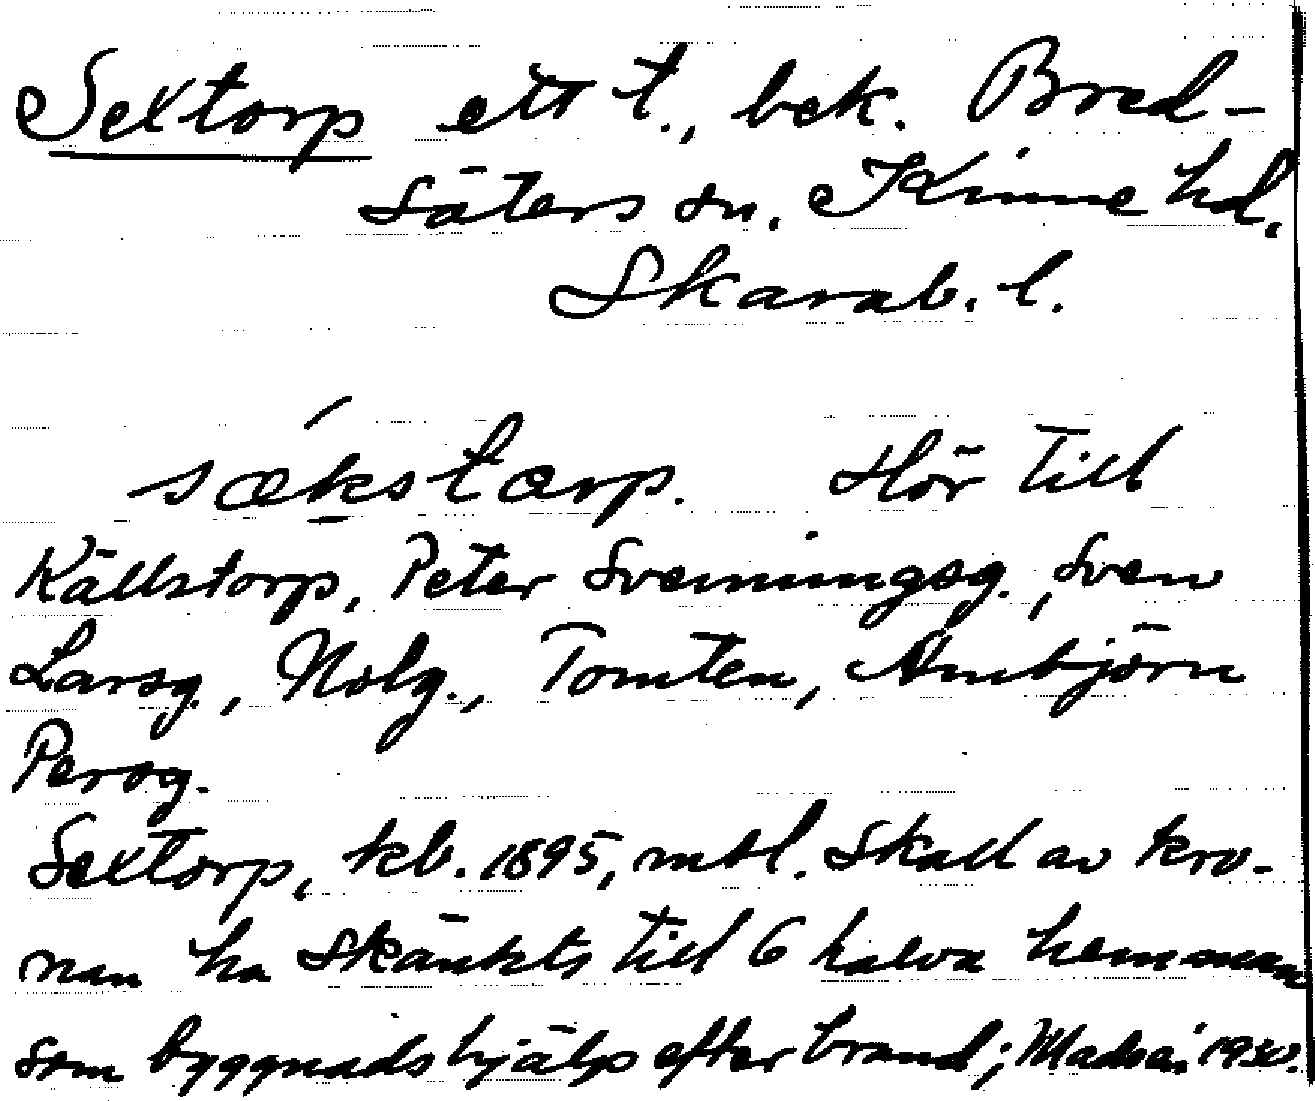 Sextorp ett t., bek. Bred-
säters sn. Kinne hd.
Skarab. l.
sækstorp. Hör till
Källstorp, Peter Svenningsg., Sven
Larsg., Nolg., Tomten, Ambjörn
Persg.
Sextorp, kb. 1895, mtl. Skall av kro-
nan ha skänkts till 6 halva hemman
som byggnadshjälp efter brand; 1930.